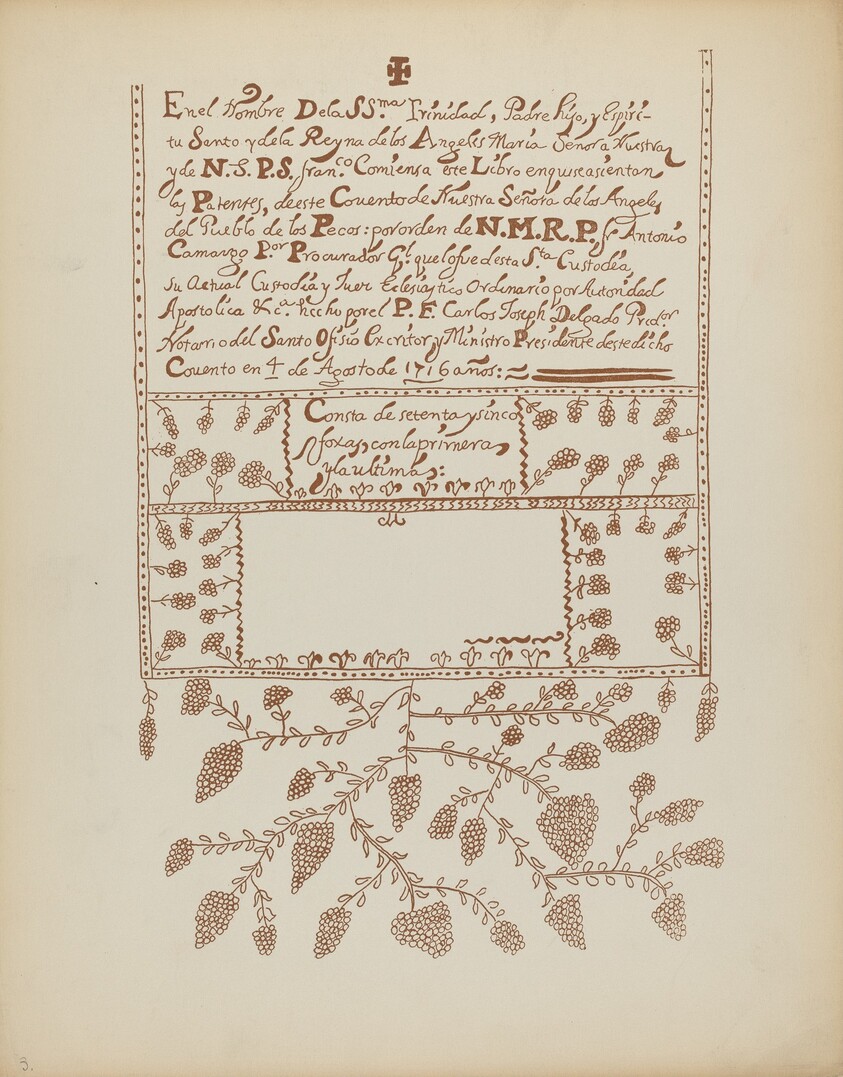 En el Nombre De la SS.ma Trinidad, Padre hijo, y Espiri-
tu Santo y de la Reyna de los Angeles Maria Señora Nuestra
y de N. S. P. S. fran.co Comiensa este Libro en quise asientan
las Patentes, de este Convento de Nuestra Señora de los Angeles
del Pueblo de los Pecos: por orden de N. M. R. P. fr. Antonio
Camargo P.or Procurador G.l que lo fue desta S.ta Custodia,
su Actual Custodia y Juez Eclesiastico Ordinario por Autoridad
Apostolica &c.a hecho por el P. F. Carlos Joseph Delgado Pred.or
Notario del Santo Ofisio Excritor y Ministro Presidente deste dicho
Covento en 4 de Agosto de 1716 años:
Consta de setenta y sinco
foxas, con la primera,
y la ultima:
3.